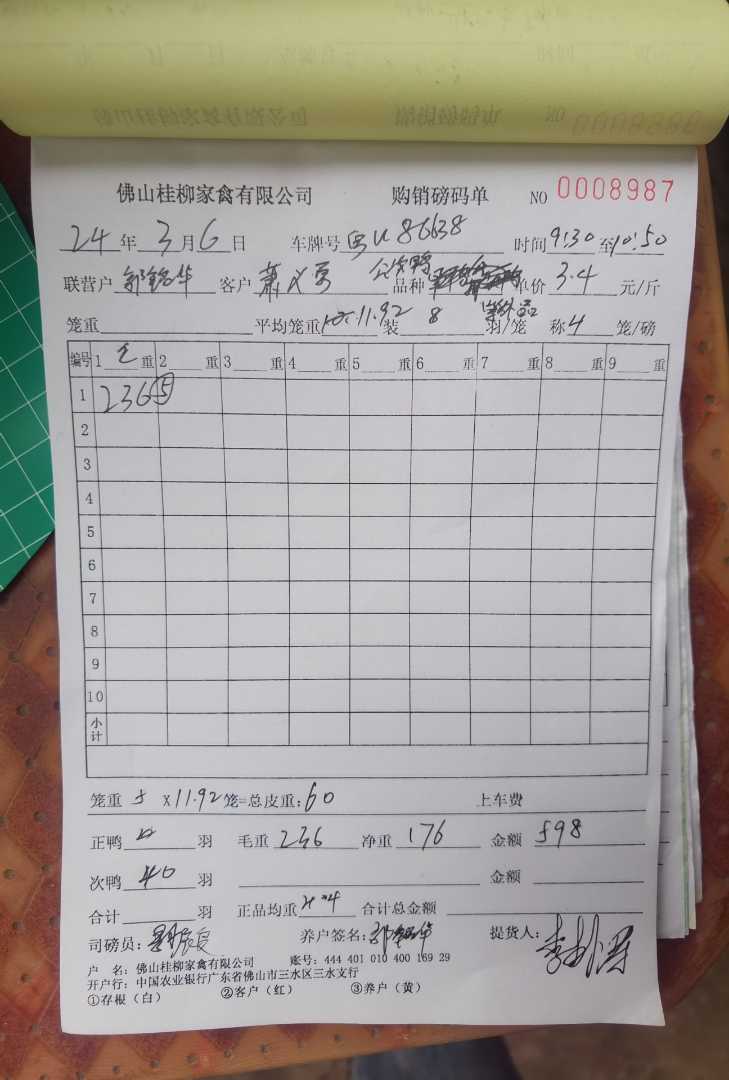 佛山桂柳家禽有限公司 购销磅码单 NO 0008987
24年3月6日 车牌号 粤U86638 时间9:30至10:50
联营户 客户 萧 品种 单价3.4元/斤
等外品
笼重 平均笼重 11.92 装8羽/笼 称4笼/磅
编号 1 毛重 2 重 3 重 4 重 5 重 6 重 7 重 8 重 9 重
1 236 ⑤
2
3
4
5
6
7
8
9
10
小计
笼重 5 X11.92笼=总皮重:60 上车费
正鸭 羽 毛重 236 净重 176 金额 598
次鸭 40 羽 金额
合计 羽 正品均重 4.4 合计总金额
司磅员: 养户签名: 提货人:
户 名: 佛山桂柳家禽有限公司 账号: 444 401 010 400 169 29
开户行: 中国农业银行广东省佛山市三水区三水支行
①存根(白) ②客户(红) ③养户(黄)